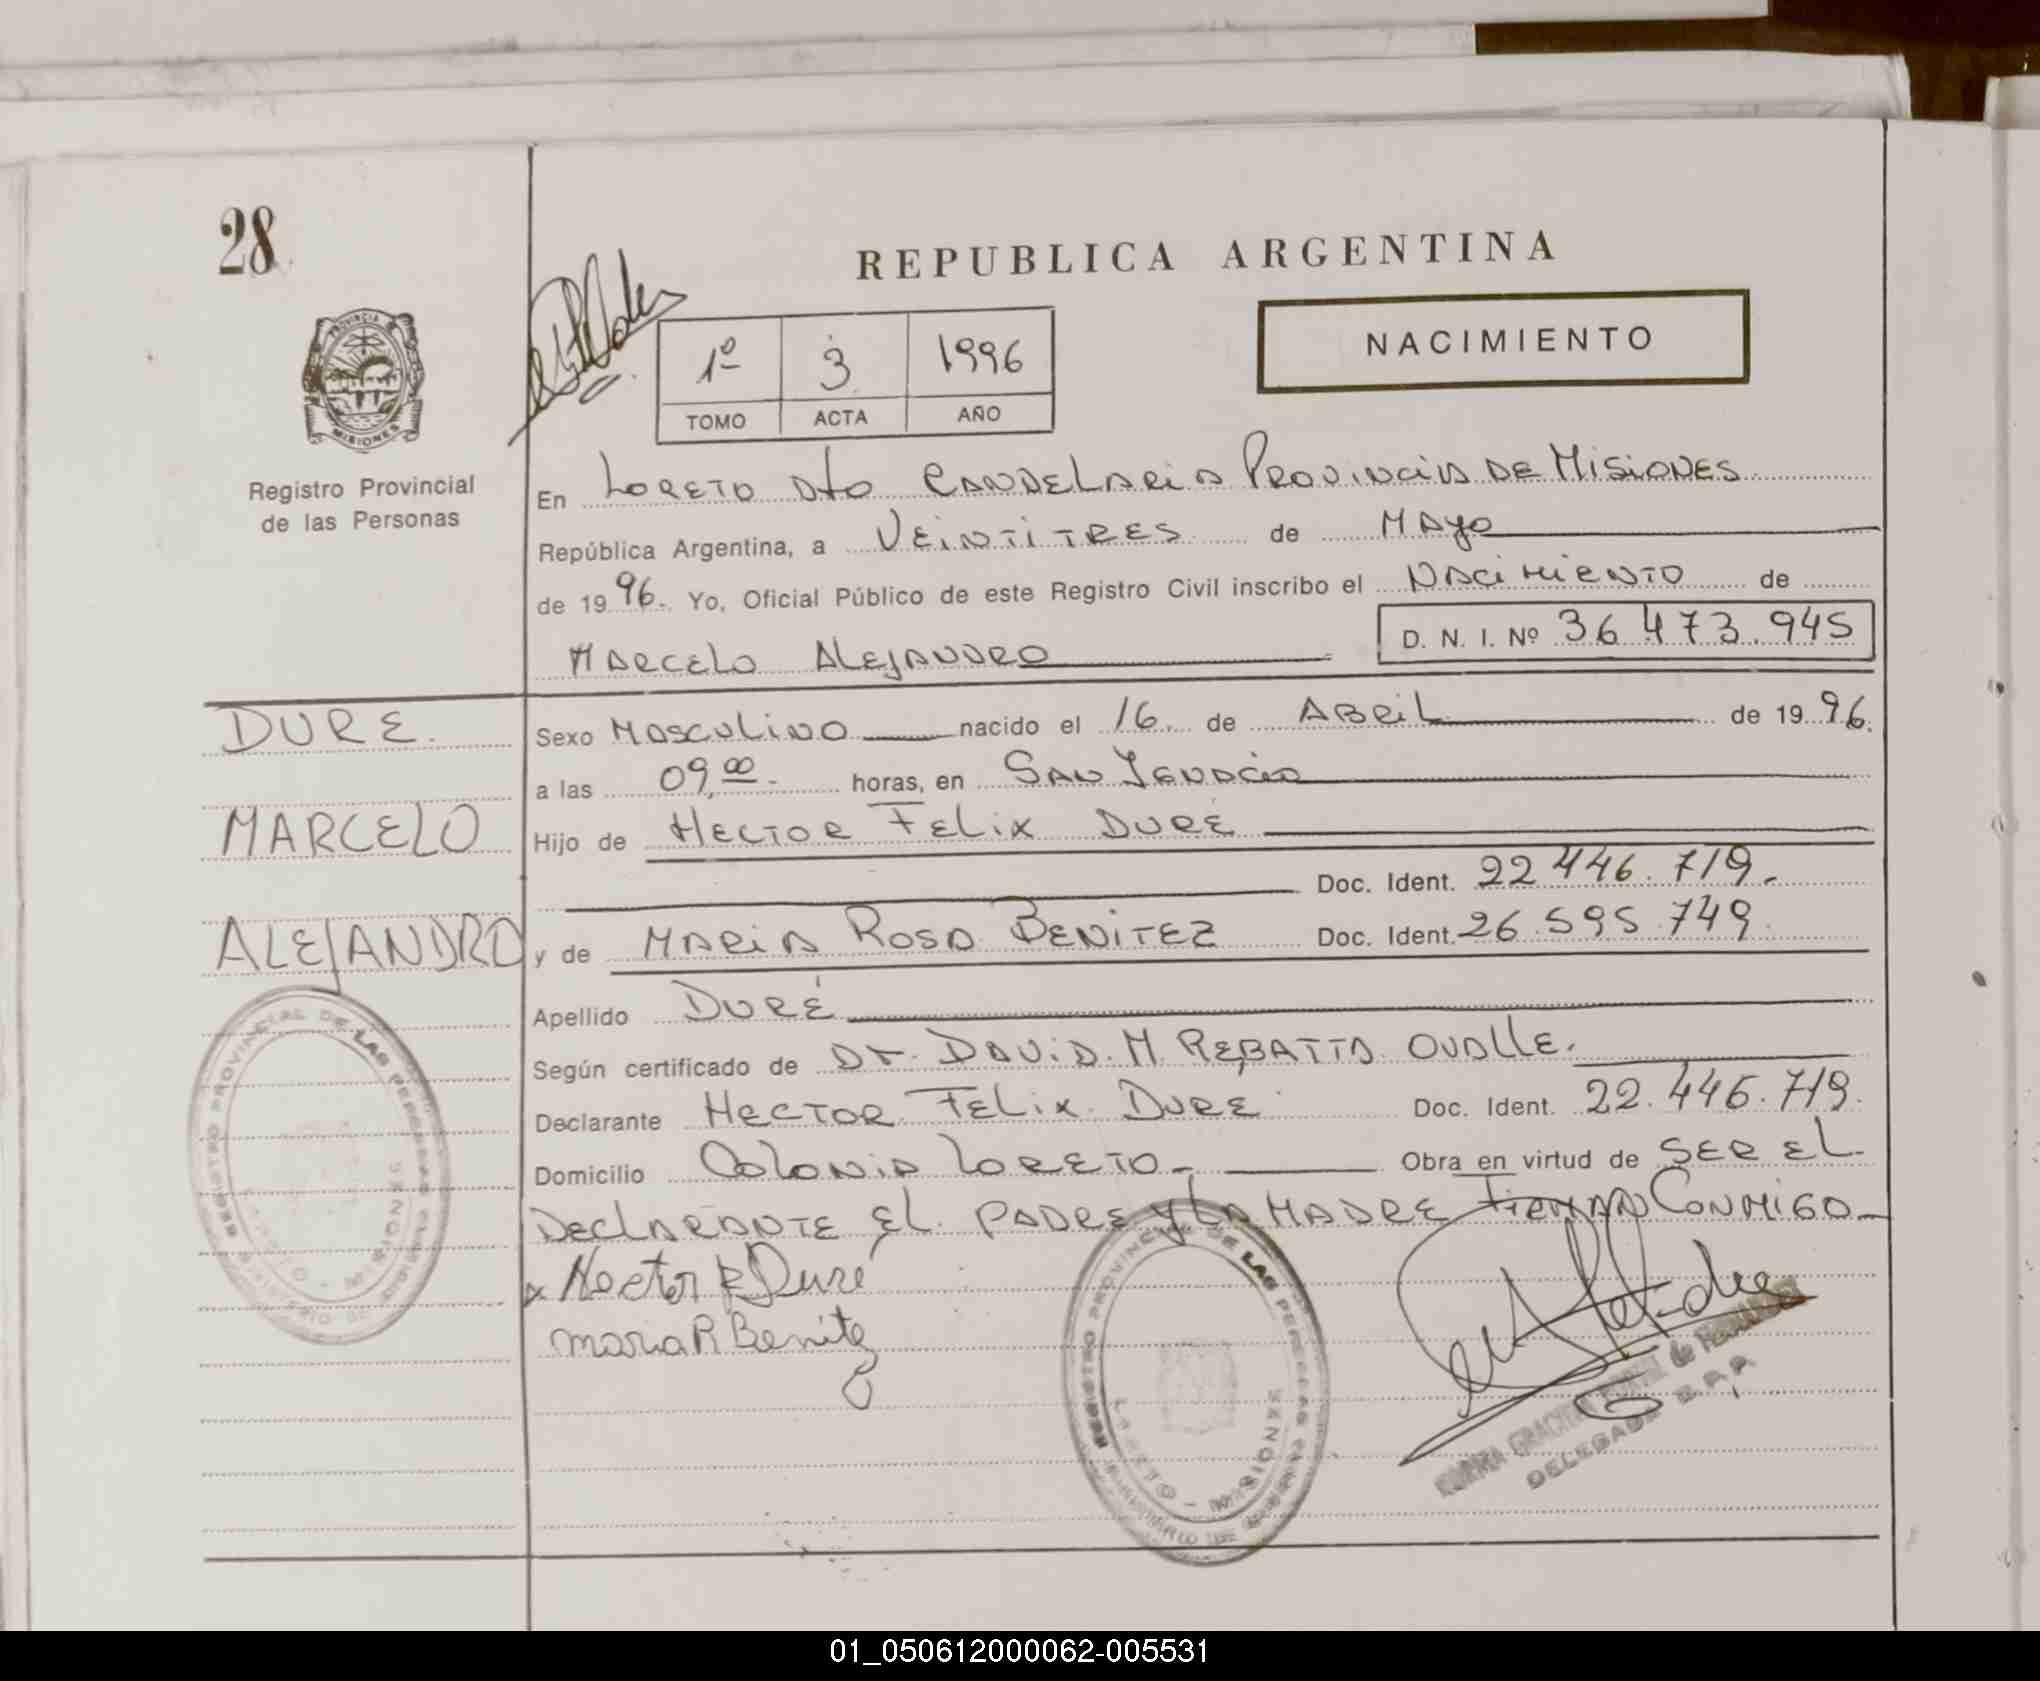 28
PROVINCIA DE
MISIONES
Registro Provincial
de las Personas
REPUBLICA ARGENTINA
NACIMIENTO
1º 3 1996
TOMO ACTA AÑO
En LORETO Dto CANDELARIA PROVINCIA DE MISIONES
República Argentina, a VEINTITRES de MAYO
de 1996. Yo, Oficial Público de este Registro Civil inscribo el NACIMIENTO de
MARCELO ALEJANDRO D. N. I. Nº 36 473.945
DURE.
MARCELO
ALEJANDRO
Sexo MASCULINO nacido el 16. de ABRIL de 1996.
a las 09,00. horas, en SAN IGNACIO
Hijo de HECTOR FELIX DURÉ
Doc. Ident. 22 446.719.
y de MARIA ROSA BENITEZ Doc. Ident. 26.595.749.
Apellido DURÉ
Según certificado de Dr. DAVID. M. REBATTA OVALLE.
Declarante HECTOR FELIX DURE Doc. Ident. 22.446.719.
Domicilio COLONIA LORETO - Obra en virtud de SER EL
DECLARANTE EL PADRE Y LA MADRE FIRMAN CONMIGO
x Hector F Duré
maria R Benitez
REGISTRO PROVINCIAL DE LAS PERSONAS
LORETO - MISIONES
REGISTRO PROVINCIAL DE LAS PERSONAS
LORETO - MISIONES
DELEGADA
01_050612000062-005531